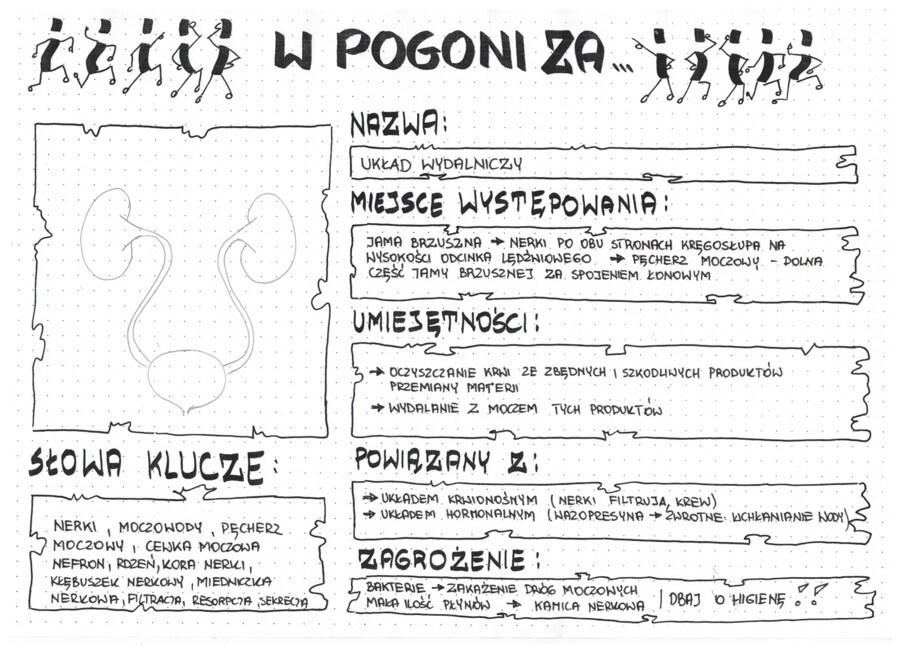 W POGONI ZA...
NAZWA:
UKŁAD WYDALNICZY
MIEJSCE WYSTĘPOWANIA:
JAMA BRZUSZNA → NERKI PO OBU STRONACH KRĘGOSŁUPA NA
WYSOKOŚCI ODCINKA LĘDŹWIOWEGO → PĘCHERZ MOCZOWY - DOLNA
CZĘŚĆ JAMY BRZUSZNEJ ZA SPOJENIEM ŁONOWYM
UMIEJĘTNOŚCI:
→ OCZYSZCZANIE KRWI ZE ZBĘDNYCH I SZKODLIWYCH PRODUKTÓW
PRZEMIANY MATERII
→ WYDALANIE Z MOCZEM TYCH PRODUKTÓW
POWIĄZANY Z:
→ UKŁADEM KRWIONOŚNYM (NERKI FILTRUJĄ KREW)
→ UKŁADEM HORMONALNYM (WAZOPRESYNA → ZWROTNE WCHŁANIANIE WODY)
ZAGROŻENIE:
BAKTERIE → ZAKAŻENIE DRÓG MOCZOWYCH
MAŁA ILOŚĆ PŁYNÓW → KAMICA NERKOWA
DBAJ O HIGIENĘ !!
SŁOWA KLUCZE:
NERKI, MOCZOWODY, PĘCHERZ
MOCZOWY, CEWKA MOCZOWA
NEFRON, RDZEŃ, KORA NERKI,
KŁĘBUSZEK NERKOWY, MIEDNICZKA
NERKOWA, FILTRACJA, RESORPCJA, SEKRECJA